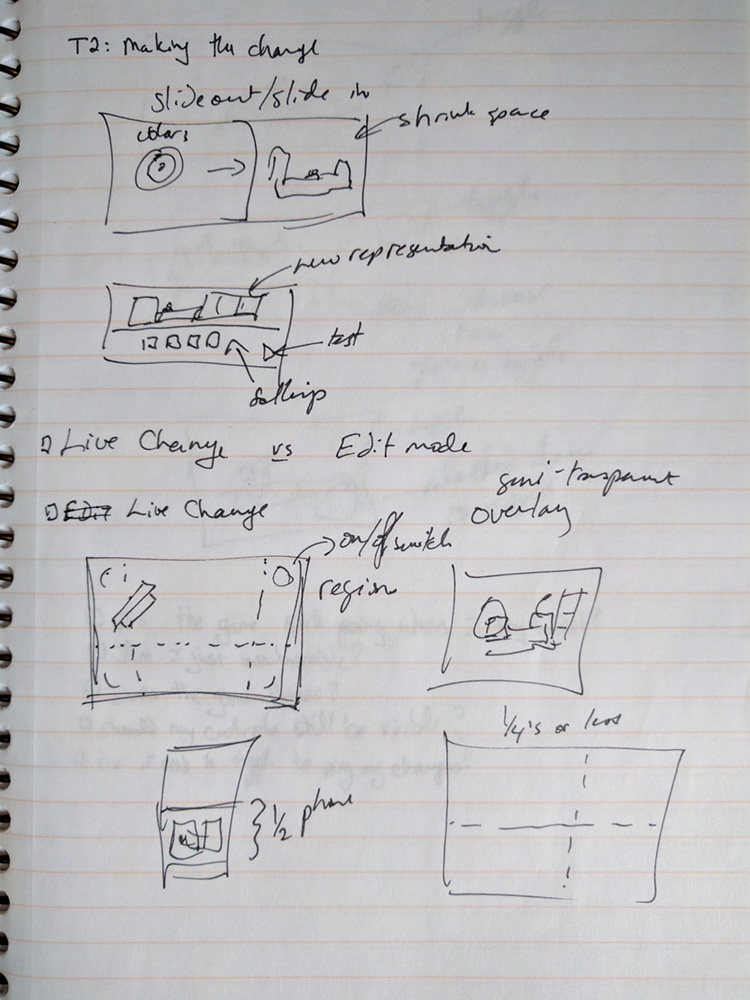 T2: Making the change
slide out/slide in
shrink space
colors
new representation
test
settings
Live Change vs Edit mode
Edit Live Change
semi-trasparant
overlay
on/off switch
region
1/4's or less
1/2 phone